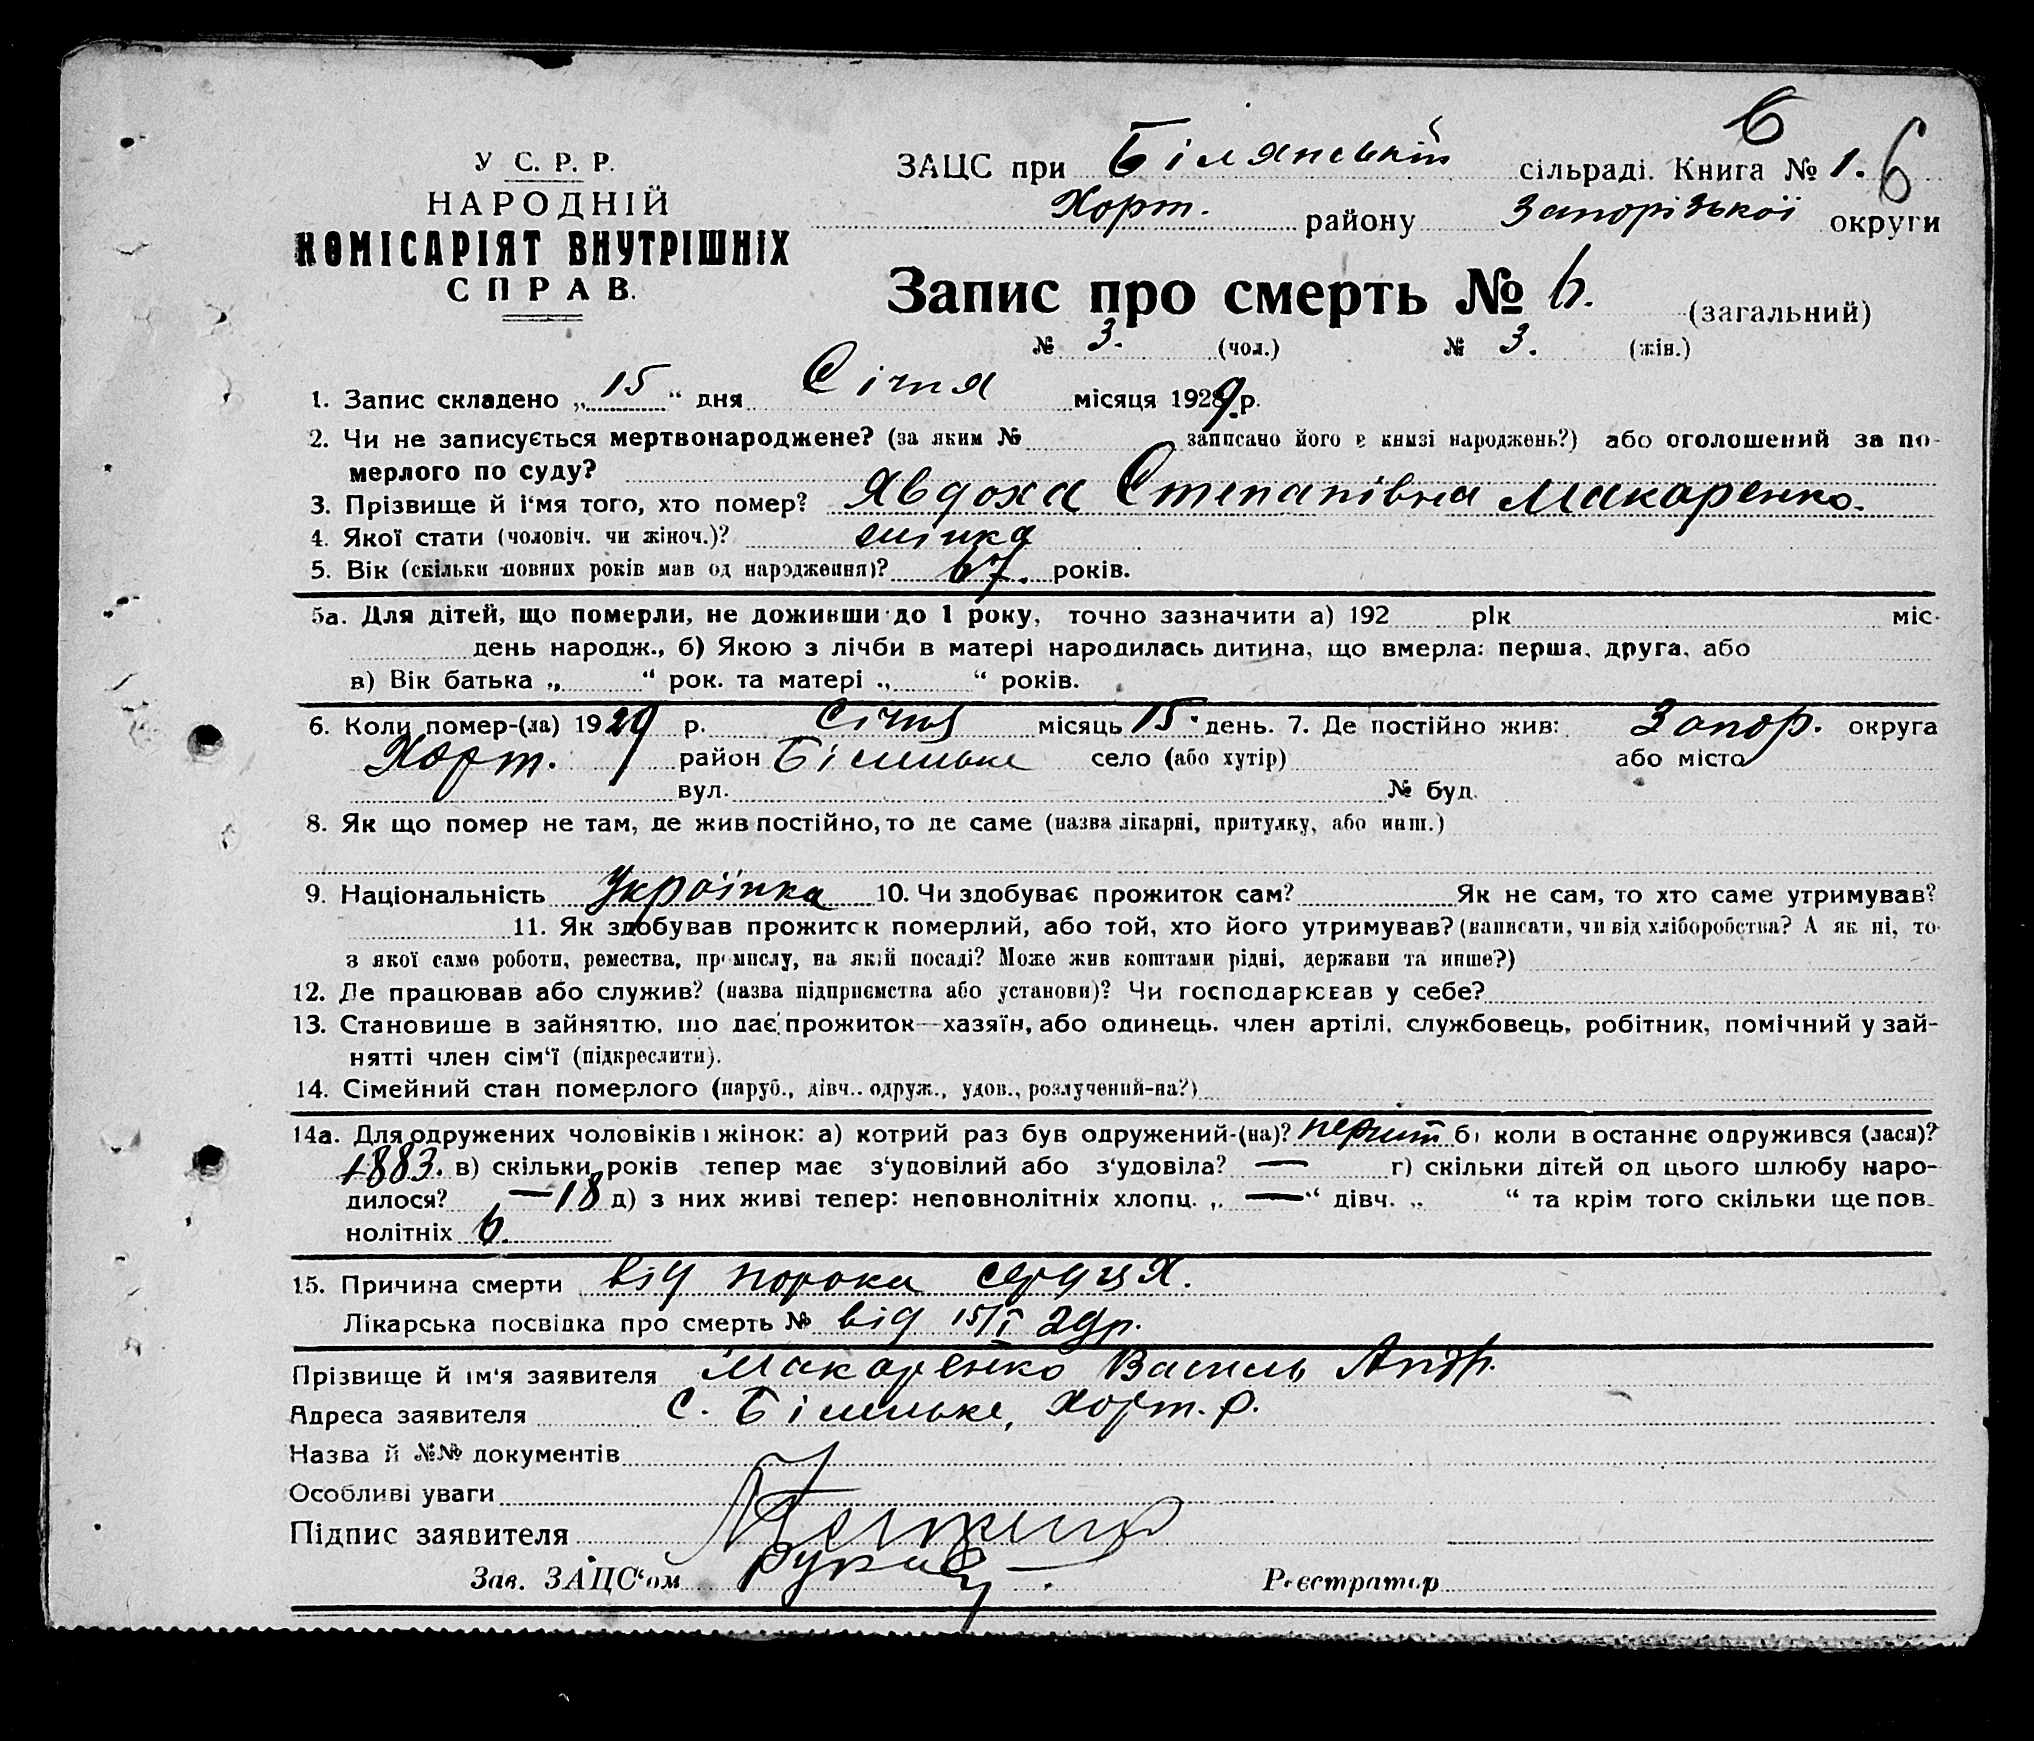 6
У С. Р. Р.
НАРОДНІЙ
КОМІСАРІЯТ ВНУТРІШНІХ
СПРАВ.
ЗАЦС при Білянській сільраді. Книга № 1. 6
Хорт. району Запорізької округи
Запис про смерть № 6. (загальний)
№ 3. (чол.) № 3. (жін.)
1. Запис складено „15“ дня Січня місяця 1929 р.
2. Чи не записується мертвонароджене? (за яким № записано його в книзі народжень?) або оголошений за по-
мерлого по суду?
3. Прізвище й і'мя того, хто помер? Явдоха Степанівна Макаренко.
4. Якої стати (чоловіч. чи жіноч.)? жінка
5. Вік (скільки повних років мав од народження)? 67. років.
5а. Для дітей, що померли, не доживши до 1 року, точно зазначити а) 192 рік міс.
день народж., б) Якою з лічби в матері народилась дитина, що вмерла: перша, друга, або
в) Вік батька „ “ рок. та матері „ “ років.
6. Коли помер-(ла) 1929 р. Січня місяць 15 день. 7. Де постійно жив: Запор. округа
Хорт. район Біленьке село (або хутір) або місто
вул. № буд.
8. Як що помер не там, де жив постійно, то де саме (назва лікарні, притулку, або инш.)
9. Національність Українка 10. Чи здобуває прожиток сам? Як не сам, то хто саме утримував?
11. Як здобував прожиток померлий, або той, хто його утримував? (написати, чи від хліборобства? А як ні, то
з якої саме роботи, ремества, промислу, на якій посаді? Може жив коштами рідні, держави та инше?)
12. Де працював або служив? (назва підприємства або установи)? Чи господарював у себе?
13. Становище в зайняттю, що дає прожиток—хазяїн, або одинець, член артілі, службовець, робітник, помічний у зай-
нятті член сім'ї (підкреслити).
14. Сімейний стан померлого (паруб., дівч.. одруж., удов., розлучений-на?)
14а. Для одружених чоловіків і жінок: а) котрий раз був одружений-(на)? перший б) коли в останнє одружився (лася)?
1883. в) скільки років тепер має з'удовілий або з'удовіла? — г) скільки дітей од цього шлюбу наро-
дилося? —18 д) з них живі тепер: неповнолітніх хлопц. „ —“ дівч. „ “ та крім того скільки ще пов-
нолітніх 6.
15. Причина смерти від порока серця.
Лікарська посвідка про смерть № від 15/I 29р.
Прізвище й ім'я заявителя Макаренко Василь Андр.
Адреса заявителя С. Біленьке, Хорт. р.
Назва й №№ документів
Особливі уваги
Підпис заявителя
Зав. ЗАЦС'ом
Реєстратор